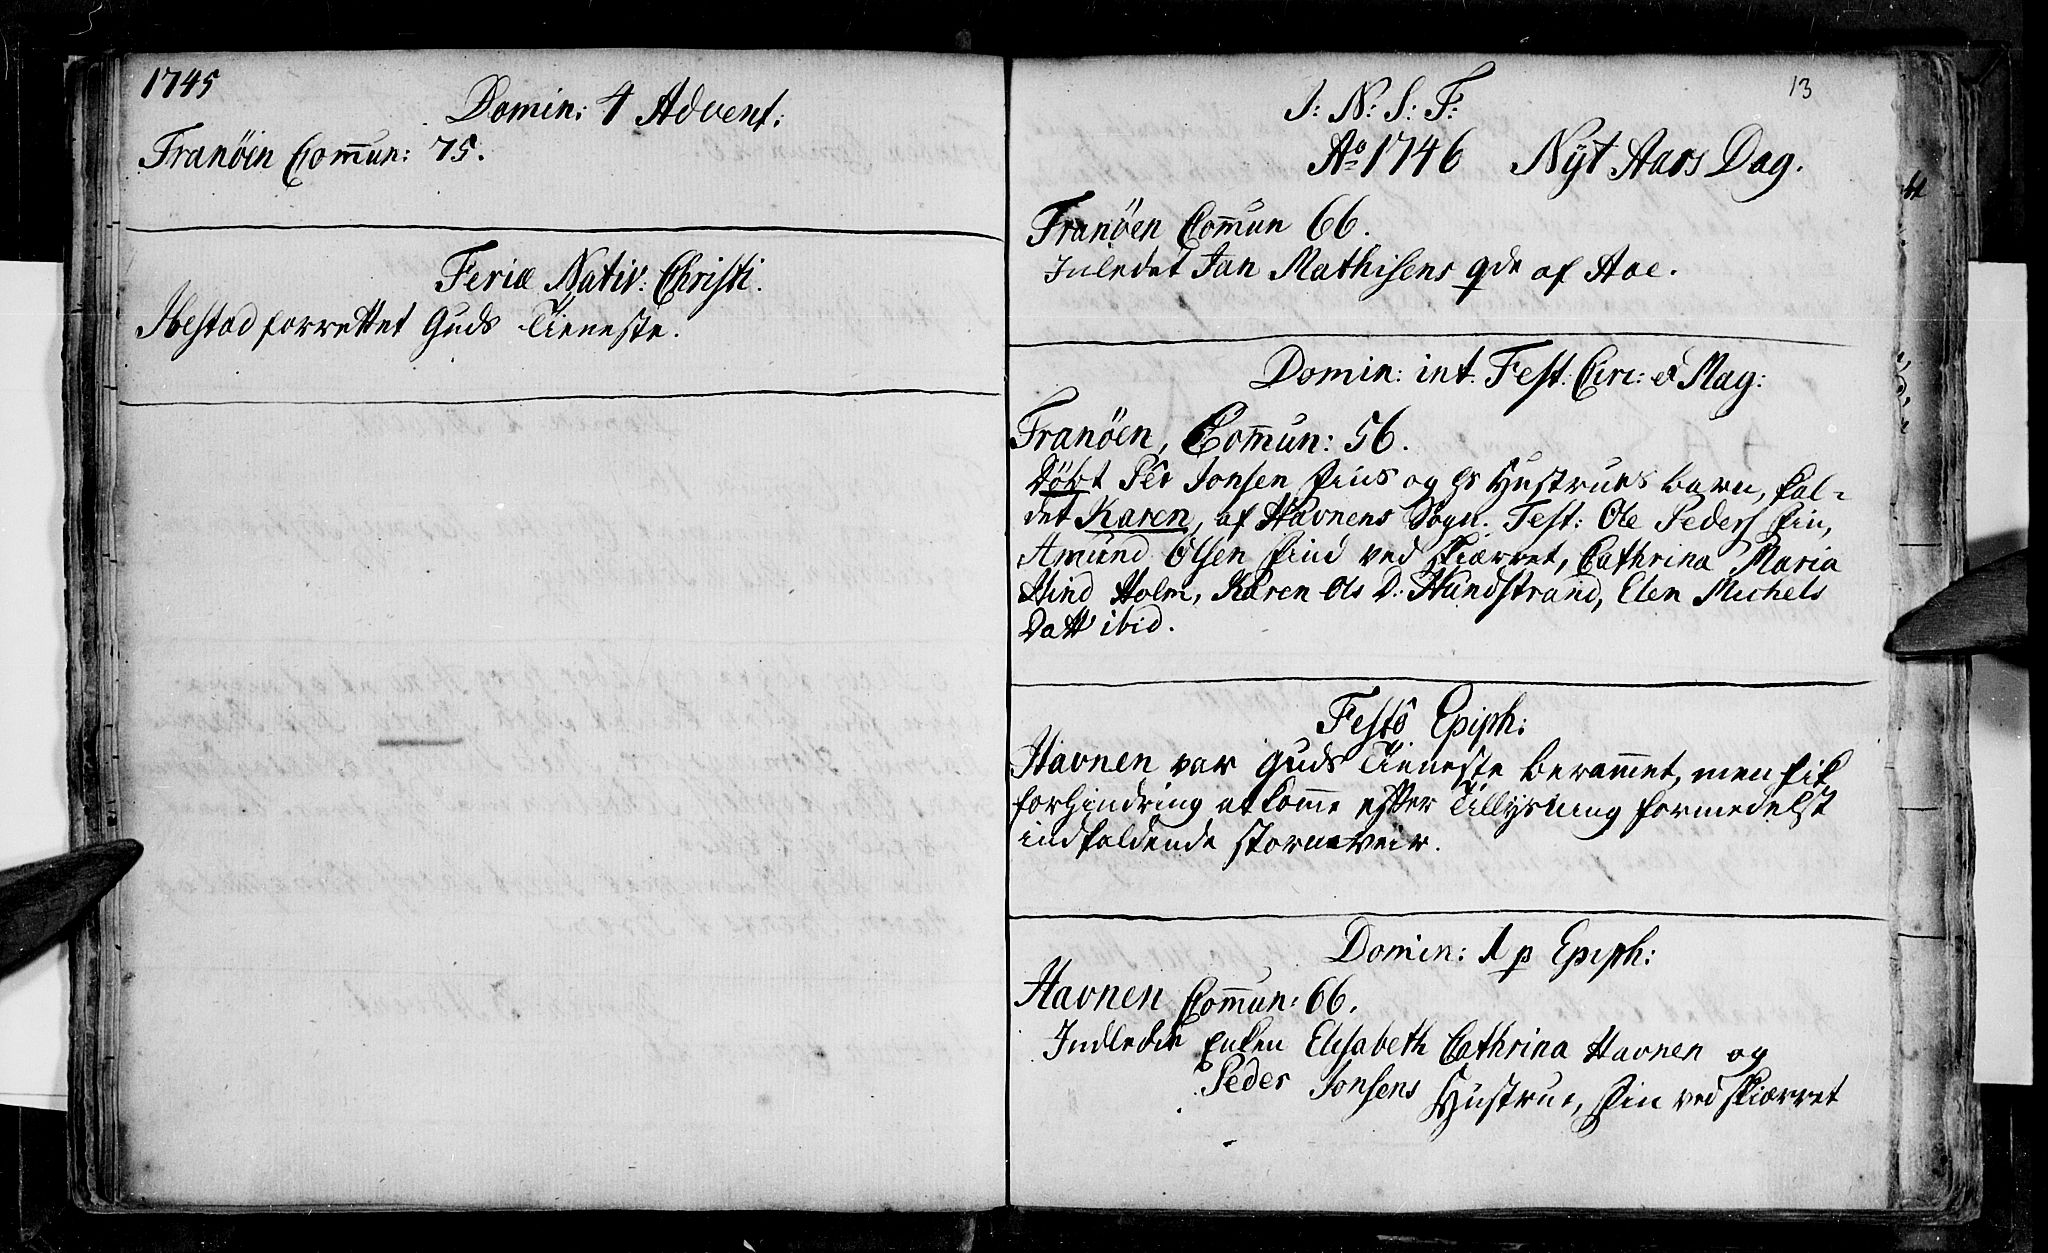 1745
Domin: 4 Advent:
Tranöen Com̄un: 75.
Feriæ Nativ: Christi.
Ibestad forrettet Guds Tieneste.
13
J: N: S: F:
Aº 1746 Nyt Aars Dag.
Tranöen Com̄un 66.
Inledet Jan Mathisens qde af Aae.
Domin: int. Fest: Circ: & Mag:
Tranöen, Com̄un: 56.
Döbt Pêr Jonsen Fins og hs Hustrues barn, kal-
det Karen, af Havnens Sogn. Test: Ole Peders Fin,
Amund Olsen Find ved Skiærret, Cathrina Maria
Hind Holm, Karen Ols D. Hundstrand, Elen Michels
Datt ibid.
Festô Epiph:
Havnen var Guds Tieneste berammet, men fik
forhindring at komme efter Tillysning formedelst
indfaldende storm veir.
Domin: 1 p Epiph:
Havnen Com̄un: 66.
Indledet Enken Elisabeth Cathrina Havnen og
Peder Jonsens Hustrue, Fin ved Skiærret